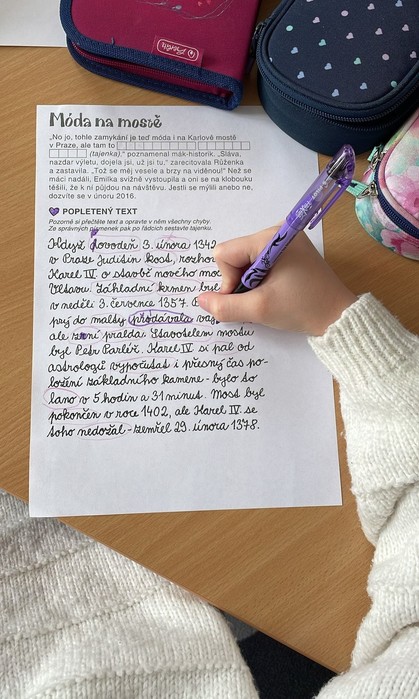 Herlitz
Móda na mostě
„No jo, tohle zamykání je teď móda i na Karlově mostě
v Praze, ale tam to
(tajenka),“ poznamenal mák-historik. „Sláva,
nazdar výletu, dojela jsi, už jsi tu,“ zarecitovala Růženka
a zastavila. „Tož se měj vesele a brzy na viděnou!“ Než se
máci nadáli, Emilka svižně vystoupila a oni se na klobouku
těšili, že k ní půjdou na návštěvu. Jestli se mýlili anebo ne,
dozvíte se v únoru 2016.
POPLETENÝ TEXT
Pozorně si přečtěte text a opravte v něm všechny chyby.
Ze správných písmenek pak po řádcích sestavte tajenku.
Když povodeň 3. února 1342
v Praze Juditin kost,
Karel IV. o stavbě nového
Vltavou. Záhladní krmen byl
v neděli 3. července 1357.
prý do malty prodávala
ale není pralda. Stavotelem mostu
byl Petr Parléř. Karel IV. si pal od
astrologů vypočítat i přesný čas po-
ložení základního kamene - bylo to
lano v 5 hodin a 31 minut. Most byl
pokončen v roce 1402, ale Karel IV. se
toho nedožal - zemřel 29. února 1378.